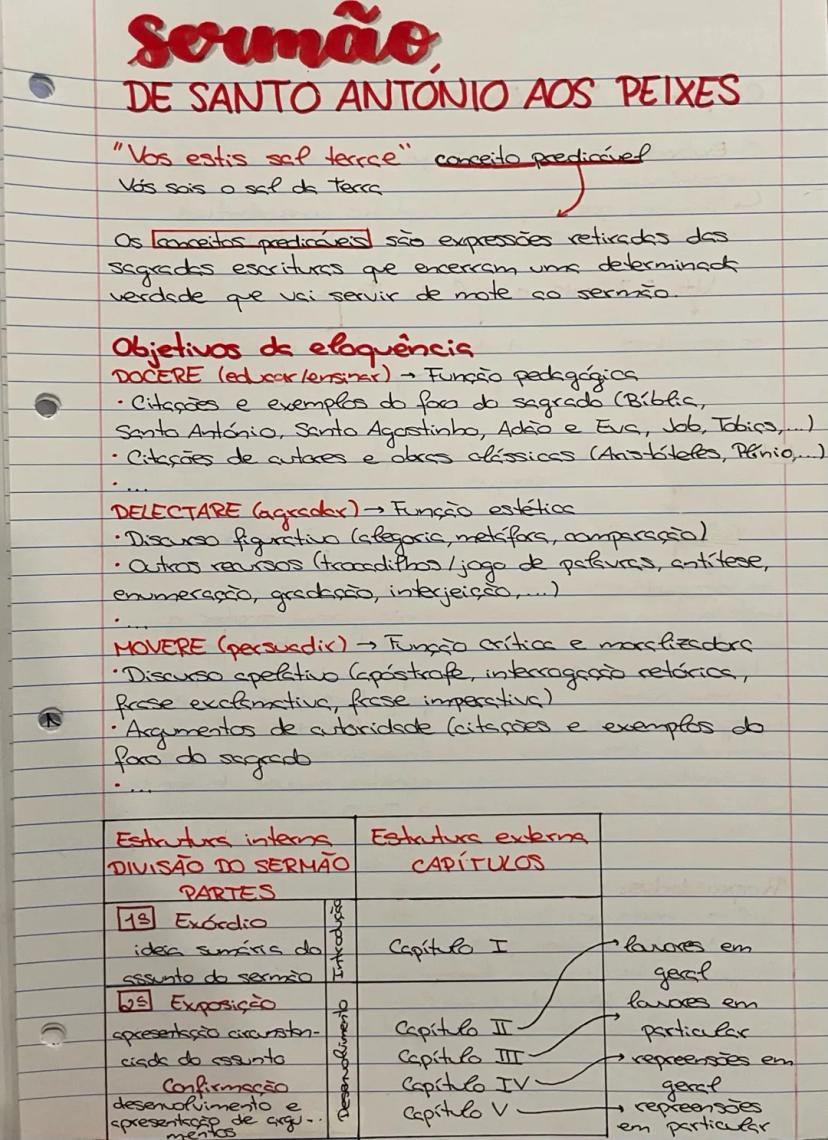 Sermão
DE SANTO ANTÓNIO AOS PEIXES
"Vos estis sal terrae" conceito predicável
Vós sois o sal da terra
Os conceitos predicáveis são expressões retiradas das
sagradas escrituras que encerram uma determinada
verdade que vai servir de mote ao sermão.
Objetivos da eloquência
DOCERE (educar/ensinar) → Função pedagógica
· Citações e exemplos do foro do sagrado (Bíblia,
Santo António, Santo Agostinho, Adão e Eva, Job, Tobias,...)
· Citações de autores e obras clássicas (Aristóteles, Plínio,...)
· ...
DELECTARE (agradar) → Função estética
· Discurso figurativo (alegoria, metáfora, comparação)
· Outros recursos (trocadilhos/jogo de palavras, antítese,
enumeração, gradação, interjeição,...)
· ...
MOVERE (persuadir) → Função crítica e moralizadora
· Discurso apelativo (apóstrofe, interrogação retórica,
frase exclamativa, frase imperativa)
· Argumentos de autoridade (citações e exemplos do
foro do sagrado
· ...
Estrutura interna
DIVISÃO DO SERMÃO
PARTES
Estrutura externa
CAPÍTULOS
1ª Exórdio
ideia sumária do
assunto do sermão
Introdução
Capítulo I
2ª Exposição
apresentação circunstan-
ciada do assunto
Confirmação
desenvolvimento e
apresentação de argu-
mentos
Desenvolvimento
Capítulo II → louvores em
geral
Capítulo III → louvores em
particular
Capítulo IV → repreensões em
geral
Capítulo V → repreensões
em particular